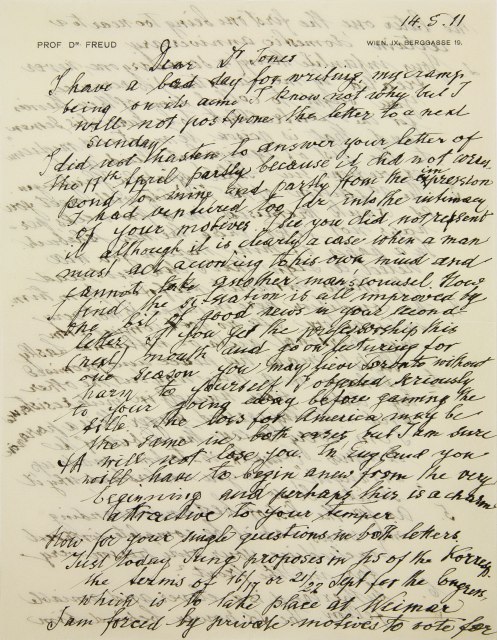 14.5.11
PROF. Dr FREUD
WIEN, IX., BERGGASSE 19.
Dear Dr Jones
I have a bad day for writing, my cramp
being on its acme I know not why but I
will not postpone the letter to a next
Sunday.
I did not hasten to answer your letter of
the 17th April partly because it did not corres
pond to mine and partly from the impression
I had ventured too far into the intimacy
of your motives. I see you did not resent
it although it is clearly a case when a man
must act according to his own mind and
cannot take another man's counsel. Now
I find the situation is all improved by
the bit of good news in your second
letter. If you get the professorship this
(next) month and go on lecturing for
one season you may leave Toronto without
harm to yourself. I objected seriously
to your going away before gaining the
title. The loss for America may be
the same in both cases but I am sure
ΨA will not lose you. In England you
will have to begin anew from the very
beginning and perhaps this is a charm
attractive to your temper.
Now for your single questions in both letters.
Just today Jung proposes in № 5 of the Korresp.
the terms of 16/17 or 21/22 Sept for the Congress,
which is to take place at Weimar.
I am forced by private motives to vote for